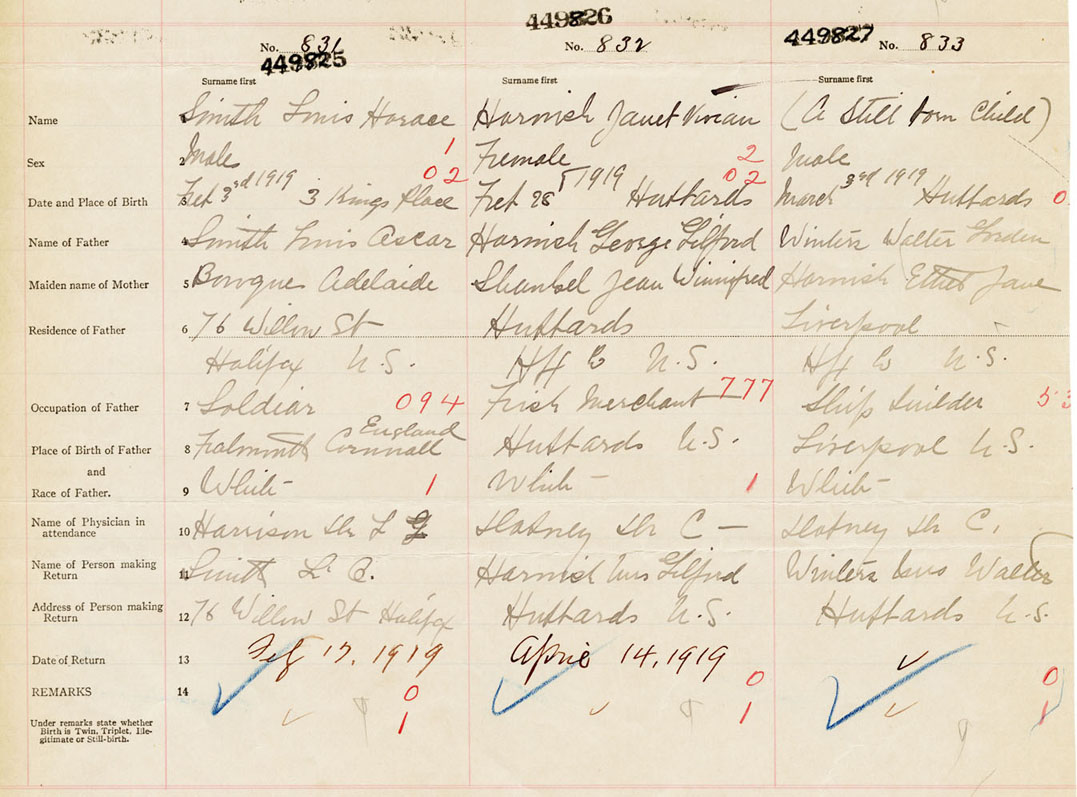 449825 449826 449827
No. 831 No. 832 No. 833
Surname first Surname first Surname first
Name Smith Louis Horace Harnish Janet Vivian (A Still born Child)
Sex 2 Male 1 Female 2 Male
Date and Place of Birth 3 Feb 3rd 1919 3 Kings Place 02 Feb 28 1919 Hubbards 02 March 3rd 1919 Hubbards 0
Name of Father 4 Smith Louis Oscar Harnish George Gilford Winters Walter Gorden
Maiden name of Mother 5 Adelaide Jean Winnifred Harnish Ethel Jane
Residence of Father 6 76 Willow St Hubbards Liverpool
Halifax N.S. Hfx Co N.S. Hfx Co N.S.
Occupation of Father 7 Soldiar 094 Fish Merchant 777 Ship builder 53
Place of Birth of Father 8 Falmouth Cornwall England Hubbards N.S. Liverpool N.S.
and
Race of Father. 9 White 1 White 1 White
Name of Physician in
attendance 10 Harrison Dr L Dr C — Dr C.
Name of Person making
Return 11 Smith L. Harnish Mrs Gilford Winters Mrs Walter
Address of Person making
Return 12 76 Willow St Halifax Hubbards N.S. Hubbards N.S.
Date of Return 13 Feb 17, 1919 April 14, 1919
REMARKS 14 0 0 0
Under remarks state whether 1 1 1
Birth is Twin, Triplet, Ille-
gitimate or Still-birth.